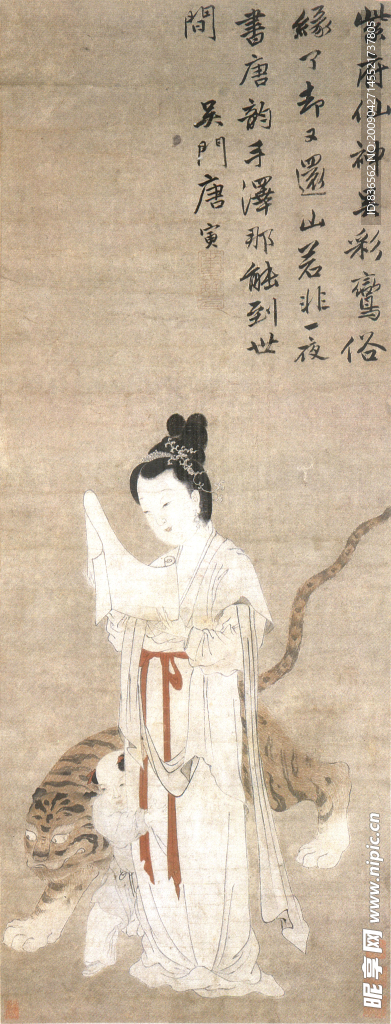 紫府仙神号彩鸞俗
緣了却又還山若非一夜
書唐韵手澤那能到世
間
吴門唐寅
ID:836562 NO:20090427145521737805
昵享网 www.nipic.cn